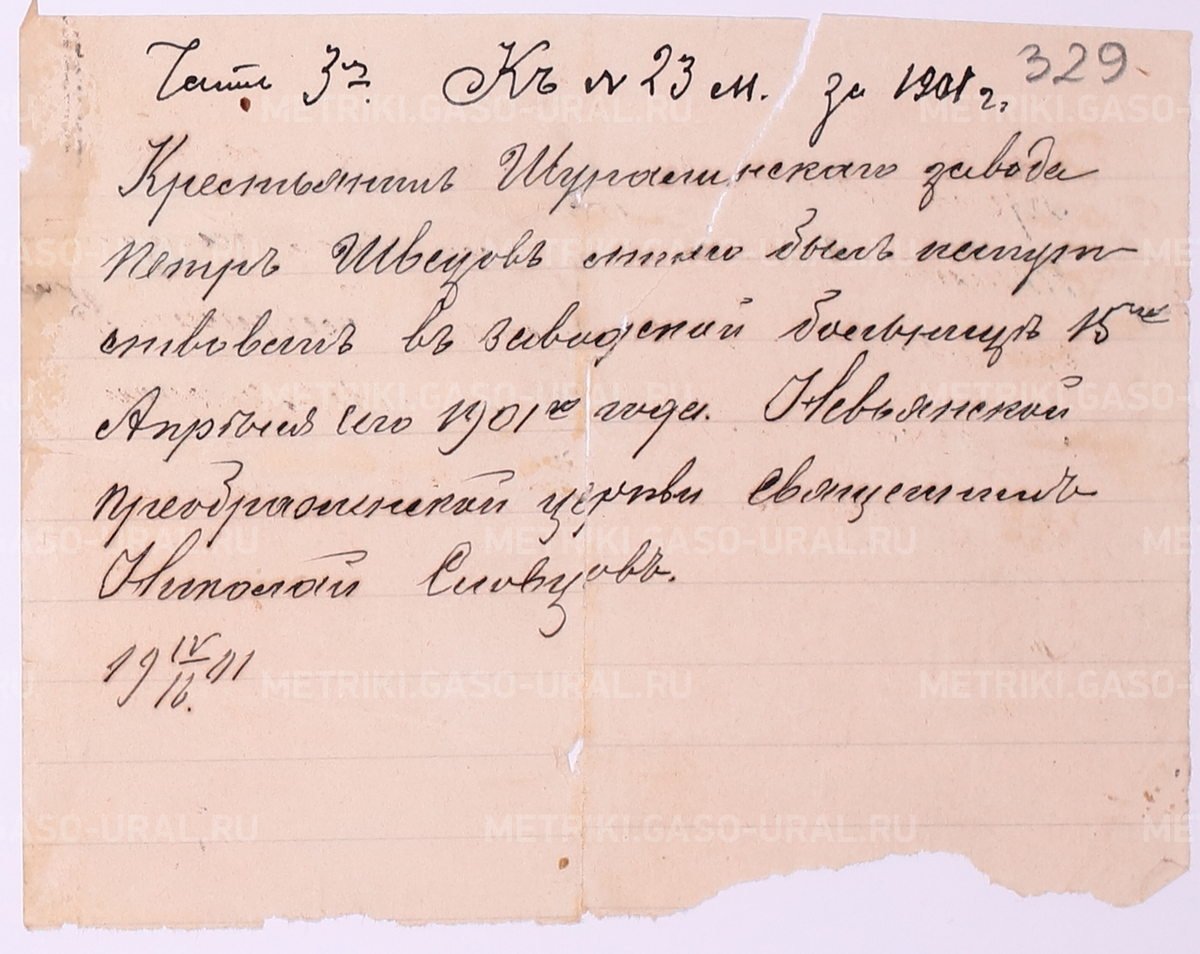 Часть 3я. Къ № 23 м. за 1901 г. 329
Крестьянинъ Шуралинскаго завода
Петръ Швецовъ мною былъ напут
ствованъ въ заводской больницѣ 15го
Апрѣля сего 1901го года. Невьянской
преображенской церкви Священникъ
Николай Словцовъ.
19 IV/16. 01
METRIKI.GASO-URAL.RU